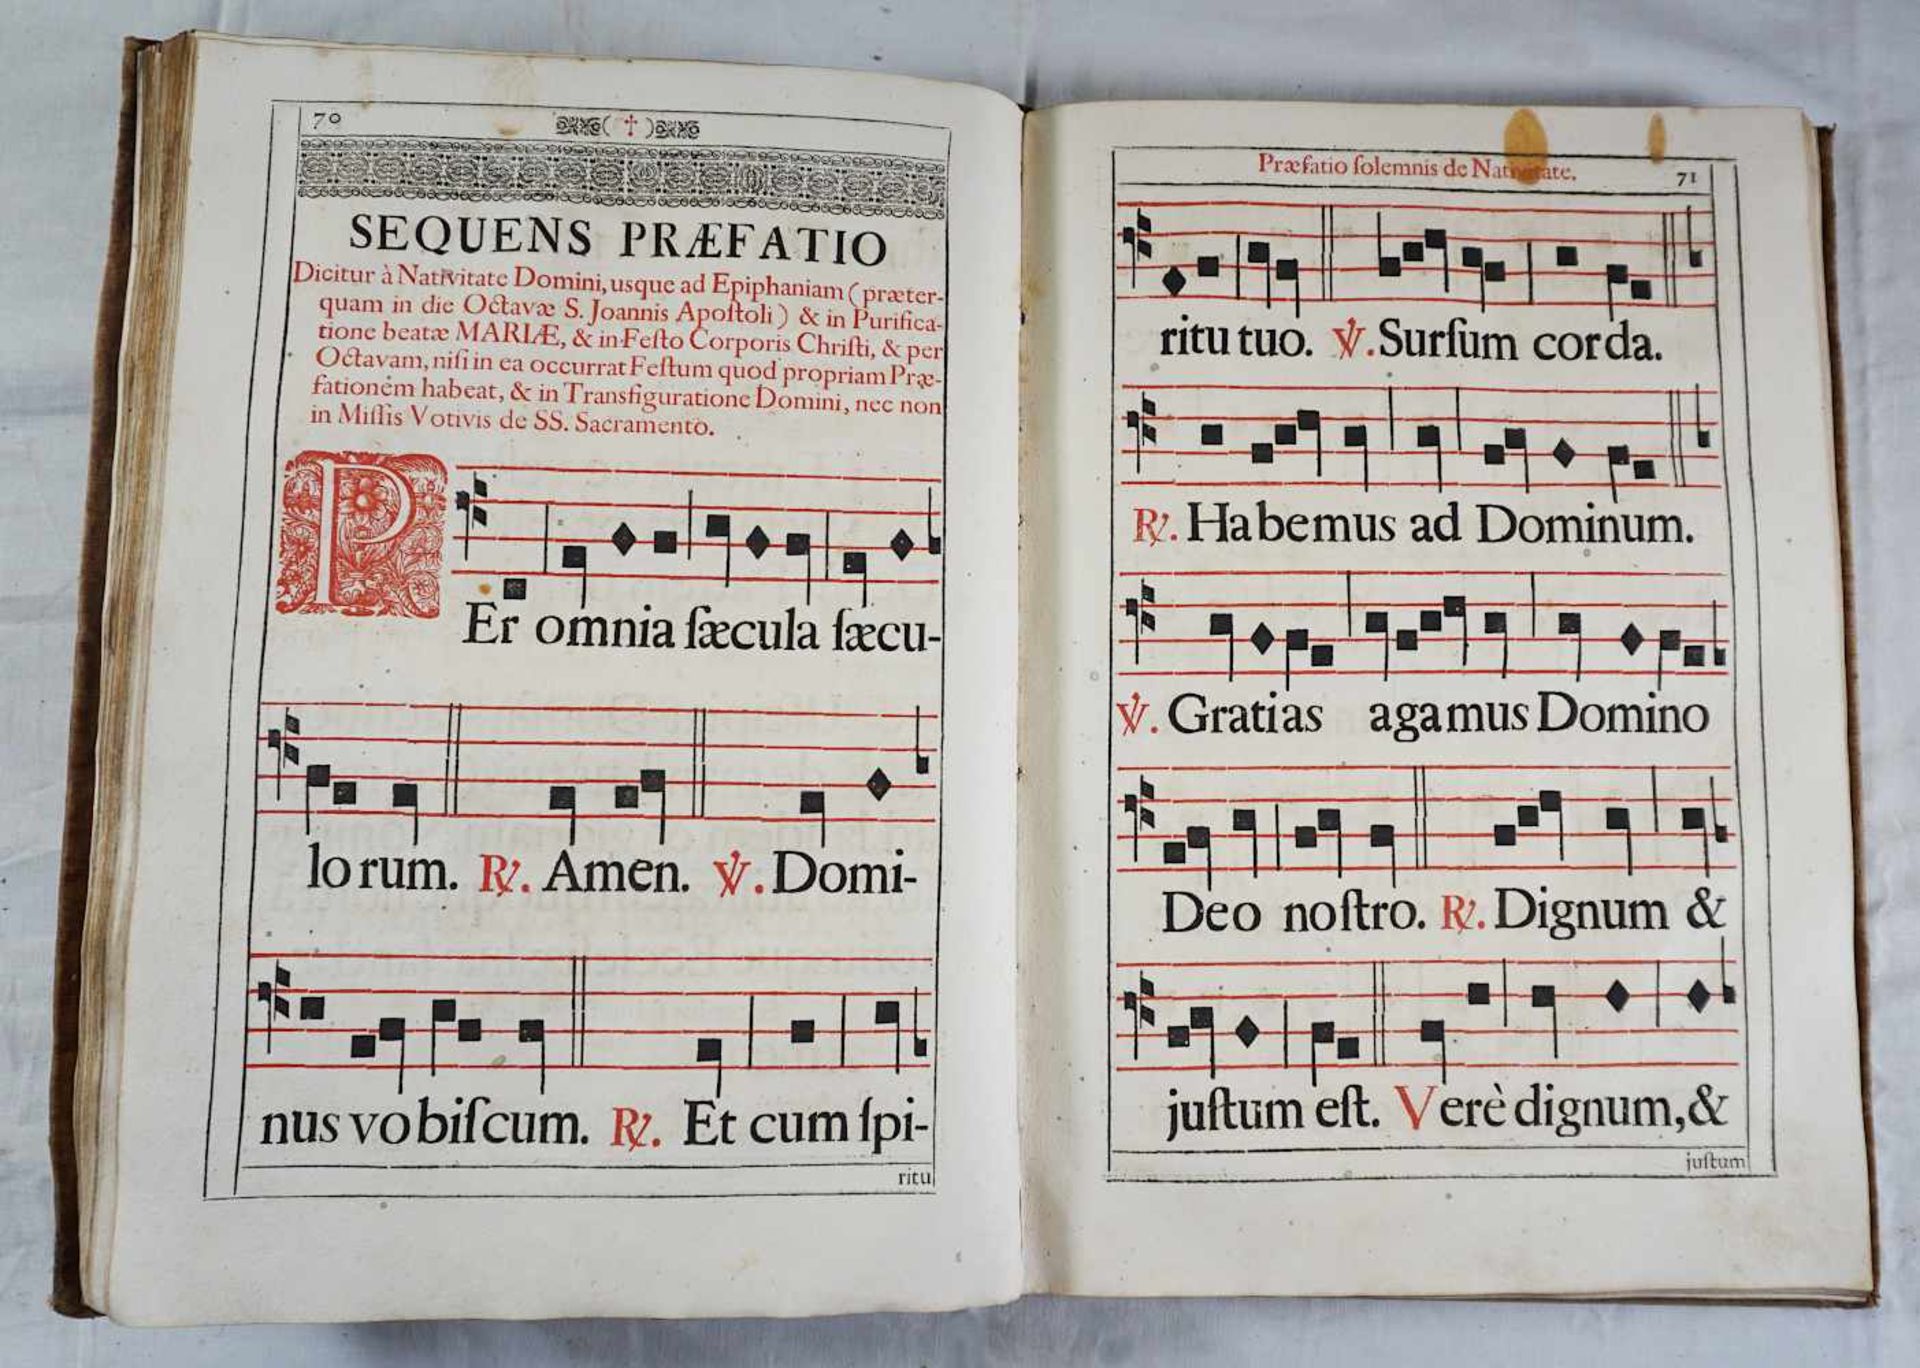 70 ( † )
SEQUENS PRÆFATIO
Dicitur à Nativitate Domini, usque ad Epiphaniam ( præter-
quam in die Octavæ S. Joannis Apoſtoli ) & in Purifica-
tione beatæ MARIÆ, & in Feſto Corporis Chriſti, & per
Octavam, niſi in ea occurrat Feſtum quod propriam Præ-
fationem habeat, & in Transfiguratione Domini, nec non
in Miſſis Votivis de SS. Sacramento.
PEr omnia ſæcula ſæcu-
lorum. ℟. Amen. ℣. Domi-
nus vobiſcum. ℟. Et cum ſpi-
ritu
Præfatio ſolemnis de Nativitate. 71
ritu tuo. ℣. Surſum corda.
℟. Habemus ad Dominum.
℣. Gratias agamus Domino
Deo noſtro. ℟. Dignum &
juſtum eſt. Verè dignum, &
juſtum